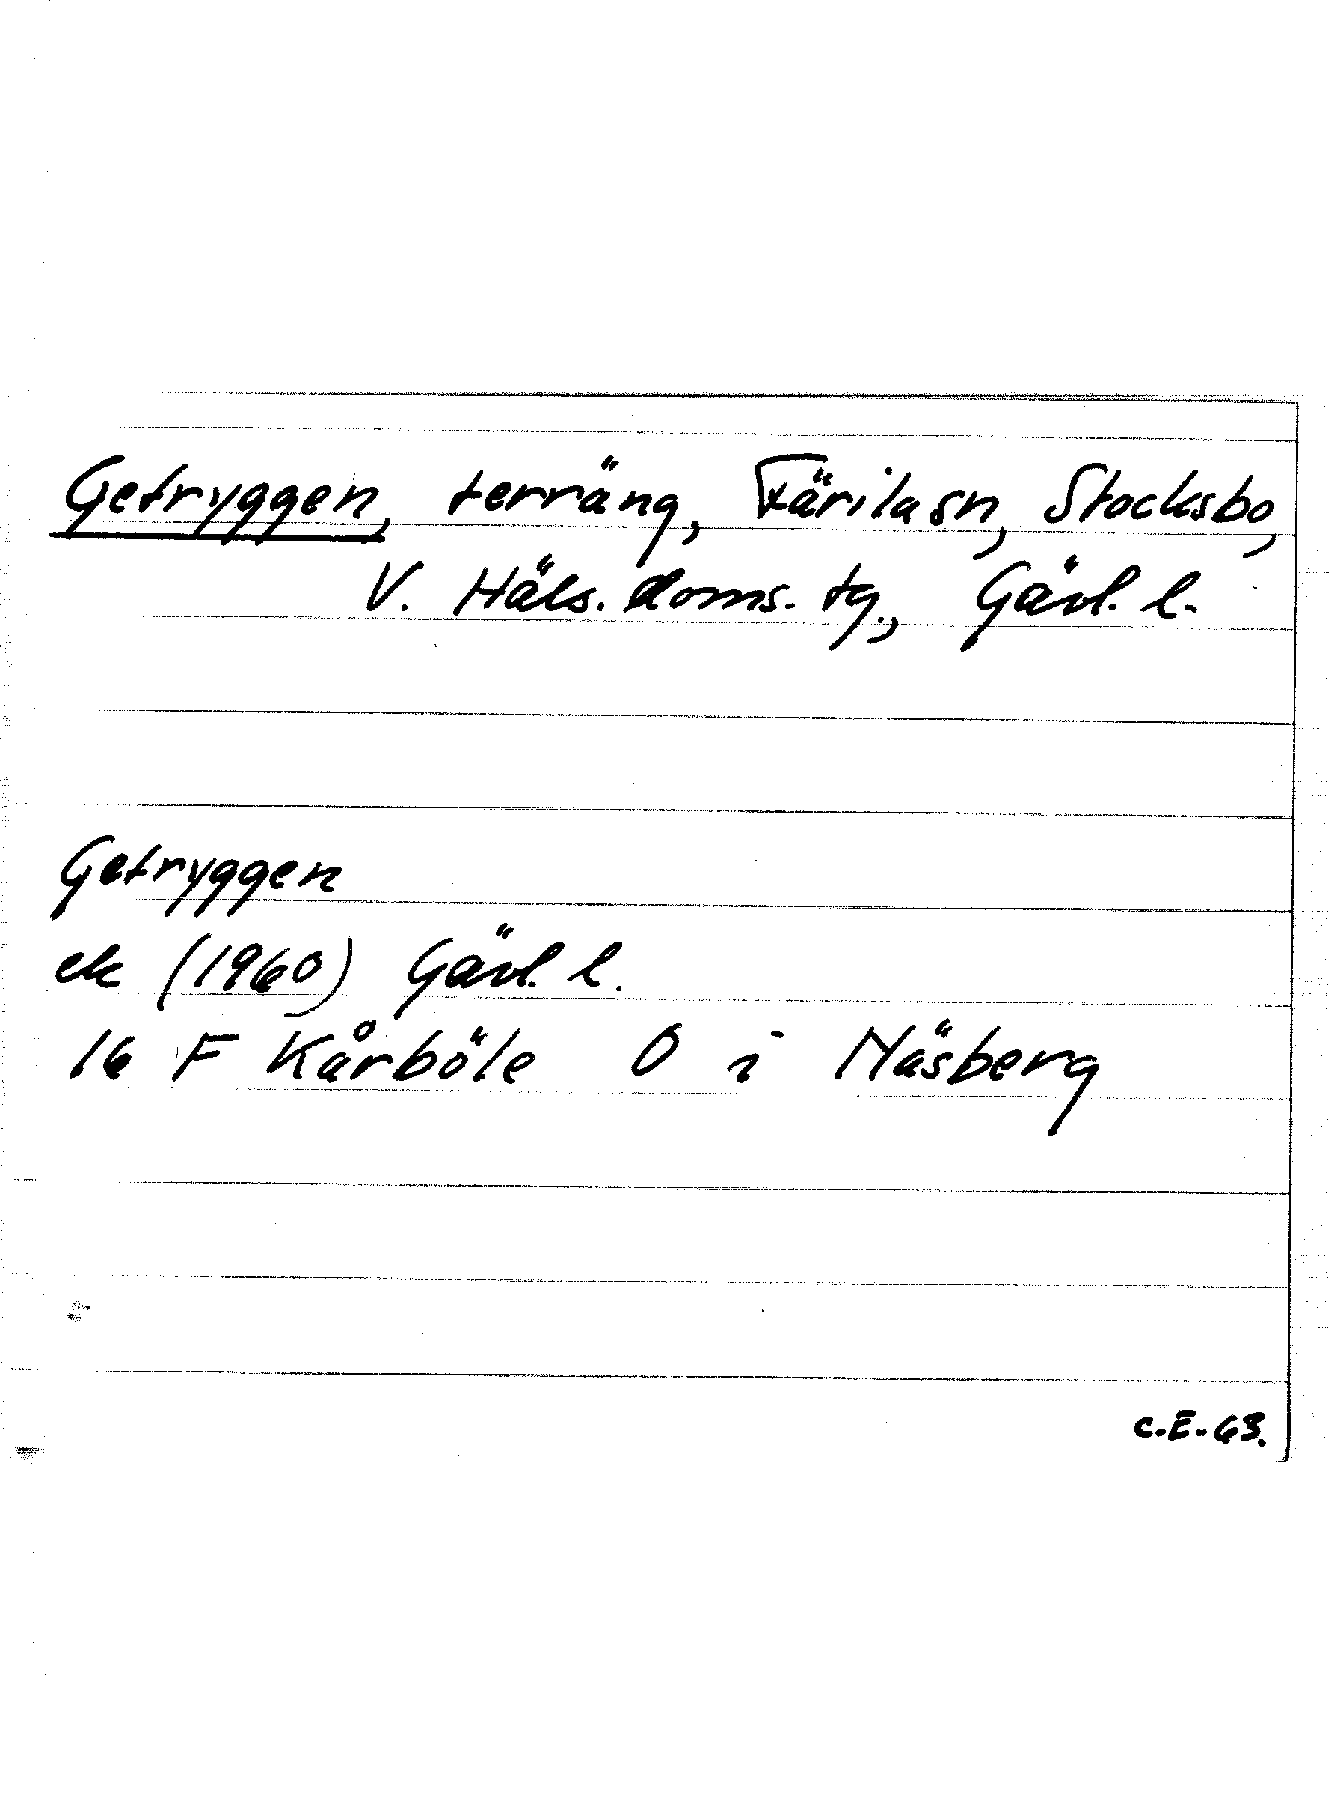 Getryggen, terräng, Färila sn, Stocksbo,
V. Häls. doms. tg., Gävl. l.
Getryggen
ek (1960) Gävl. l.
16 F Kårböle O i Näsberg
C.E-63.